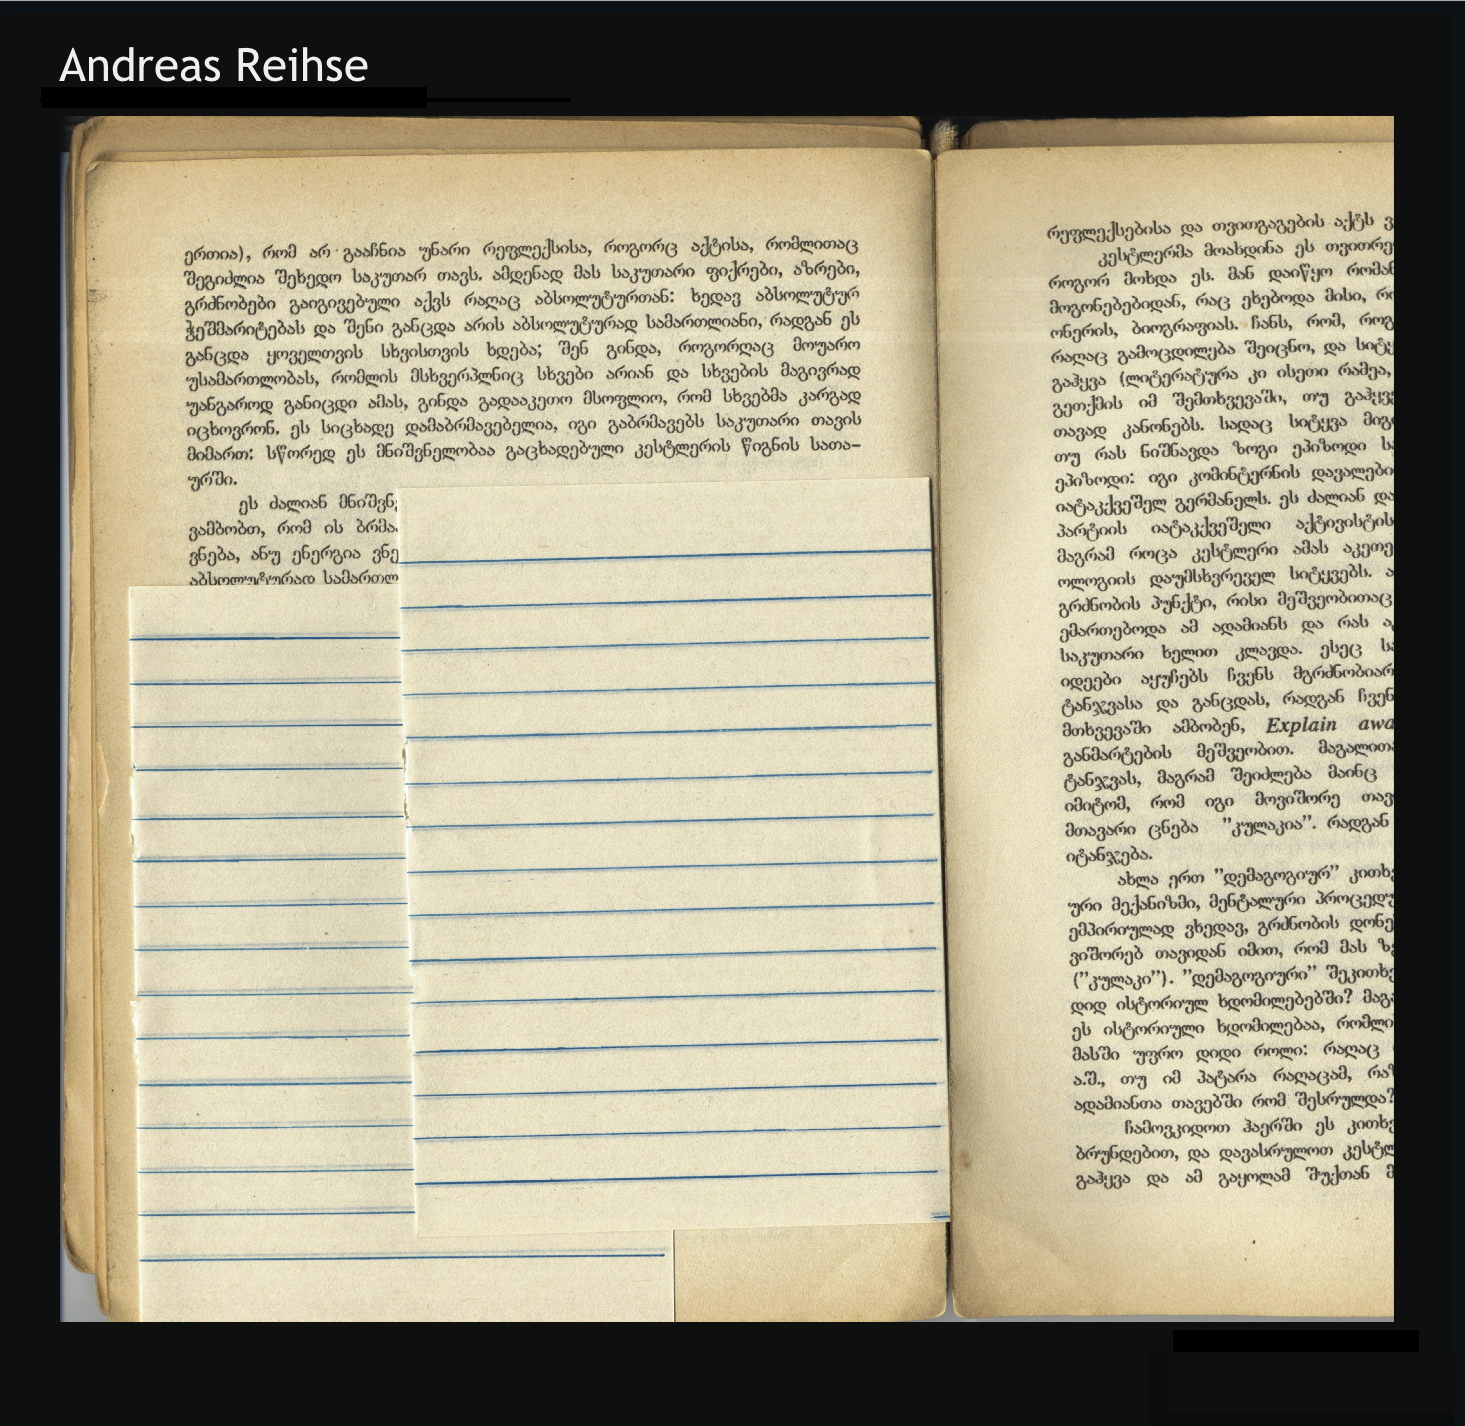 Andreas Reihse
ერთია), რომ არ გააჩნია უნარი რეფლექსისა, როგორც აქტისა, რომლითაც
შეგიძლია შეხედო საკუთარ თავს. ამდენად მას საკუთარი ფიქრები, აზრები,
გრძნობები გაიგივებული აქვს რაღაც აბსოლუტურთან: ხედავ აბსოლუტურ
ჭეშმარიტებას და შენი განცდა არის აბსოლუტურად სამართლიანი, რადგან ეს
განცდა ყოველთვის სხვისთვის ხდება; შენ გინდა, როგორღაც მოუარო
უსამართლობას, რომლის მსხვერპლნიც სხვები არიან და სხვების მაგივრად
უანგაროდ განიცდი ამას, გინდა გადააკეთო მსოფლიო, რომ სხვებმა კარგად
იცხოვრონ. ეს სიცხადე დამაბრმავებელია, იგი გაბრმავებს საკუთარი თავის
მიმართ: სწორედ ეს მნიშვნელობაა გაცხადებული კესტლერის წიგნის სათა-
ურში.
ეს ძალიან მნიშვნ
ვამბობთ, რომ ის ბრმა
ვნება, ანუ ენერგია ვნე
აბსოლუტურად სამართლ
რეფლექსებისა და თვითგაგების აქტს ვ
კესტლერმა მოახდინა ეს თვითრე
როგორ მოხდა ეს. მან დაიწყო რომან
მოგონებებიდან, რაც ეხებოდა მისი, რო
ონერის, ბიოგრაფიას. ჩანს, რომ, როგ
რაღაც გამოცდილება შეიცნო, და სიტყ
გაჰყვა (ლიტერატურა კი ისეთი რამეა,
გეთქმის იმ შემთხვევაში, თუ გაჰყვე
თავად კანონებს. სადაც სიტყვა მიგ
თუ რას ნიშნავდა ზოგი ეპიზოდი ს
ეპიზოდი: იგი კომინტერნის დავალები
იატაკქვეშელ გერმანელს. ეს ძალიან და
პარტიის იატაკქვეშელი აქტივისტის
მაგრამ როცა კესტლერი ამას აკეთე
ოლოგიის დაუმსხვრეველ სიტყვებს. ა
გრძნობის პუნქტი, რისი მეშვეობითაც
ემართებოდა ამ ადამიანს და რას ა
საკუთარი ხელით კლავდა. ესეც ს
იდეები აყუჩებს ჩვენს მგრძნობიარ
ტანჯვასა და განცდას, რადგან ჩვენ
მთხვევაში ამბობენ, Explain awa
განმარტების მეშვეობით. მაგალით
ტანჯვას, მაგრამ შეიძლება მაინც
იმიტომ, რომ იგი მოვიშორე თავ
მთავარი ცნება "კულაკია". რადგან
იტანჯება.
ახლა ერთ "დემაგოგიურ" კითხ
ური მექანიზმი, მენტალური პროცედუ
ემპირიულად ვხედავ, გრძნობის დონე
ვიშორებ თავიდან იმით, რომ მას ზ
("კულაკი"). "დემაგოგიური" შეკითხ
დიდ ისტორიულ ხდომილებებში? მაგ
ეს ისტორიული ხდომილებაა, რომლი
მასში უფრო დიდი როლი: რაღაც
ა.შ., თუ იმ პატარა რაღაცამ, რა
ადამიანთა თავებში რომ შესრულდა?
ჩამოვკიდოთ ჰაერში ეს კითხ
ბრუნდებით, და დავასრულოთ კესტლ
გაჰყვა და ამ გაყოლამ შუქთან მ